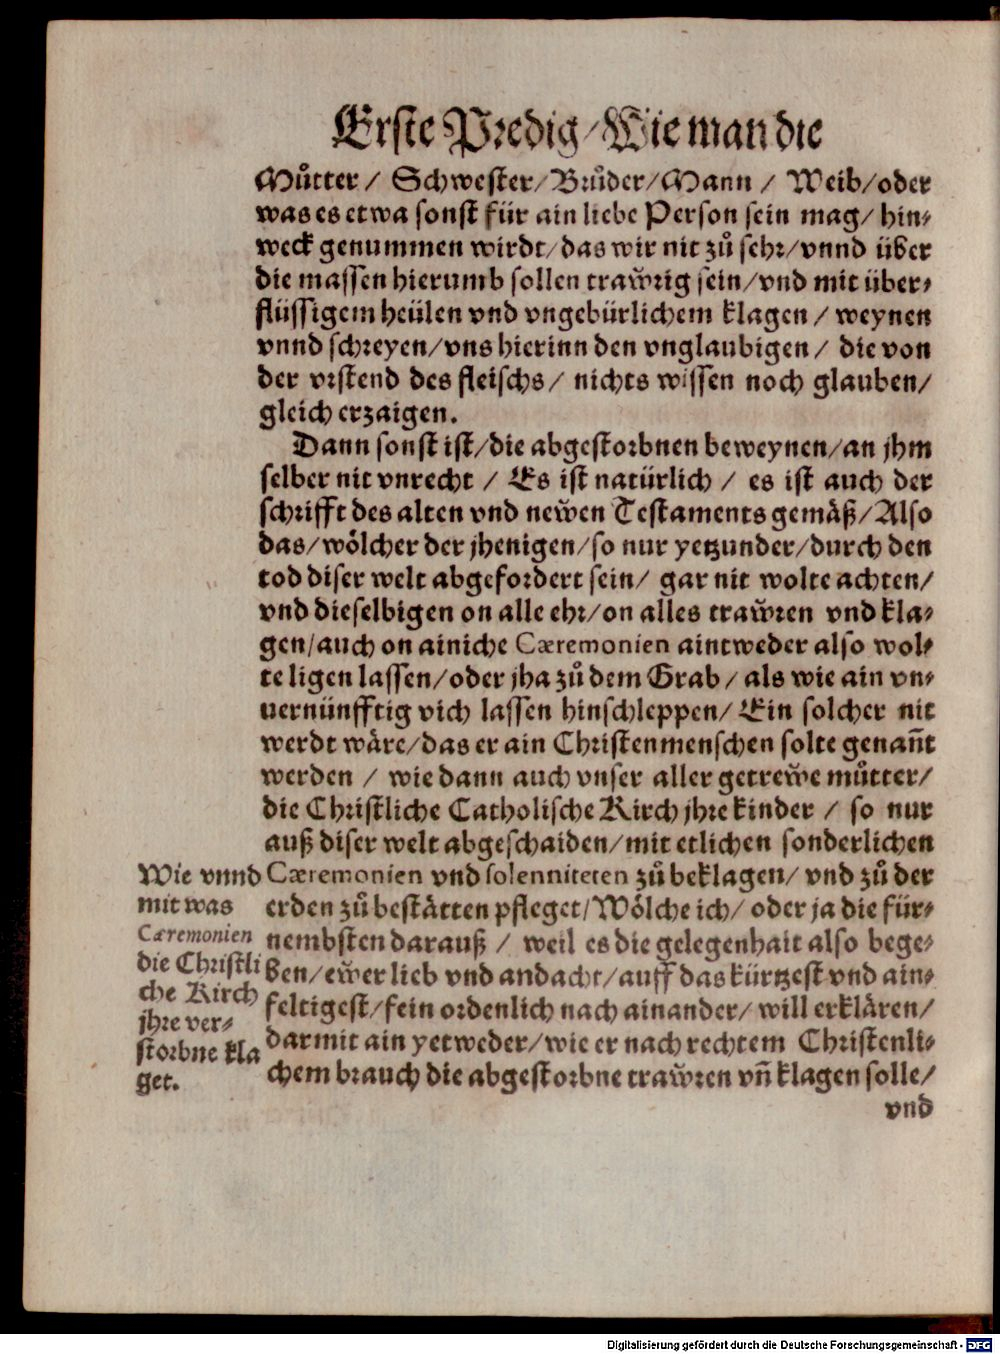 Erste Predig/Wie man die
Můtter/ Schwester/Brůder/Mann/ Weib/oder
was es etwa sonst für ain liebe Person sein mag/ hin⸗
weck genummen wirdt/das wir nit zů sehr/vnnd über
die massen hierumb sollen traẅrig sein/vnd mit über⸗
flüssigem heülen vnd vngebürlichem klagen/ weynen
vnnd schreyen/vns hierinn den vnglaubigen/ die von
der vrstend des fleischs/ nichts wissen noch glauben/
gleich erzaigen.
Dann sonst ist/die abgestorbnen beweynen/an jhm
selber nit vnrecht/ Es ist natürlich/ es ist auch der
schrifft des alten vnd neẅen Testaments gemäß/Also
das/wölcher der jhenigen/so nur yetzunder/durch den
tod diser welt abgefordert sein/ gar nit wolte achten/
vnd dieselbigen on alle ehr/on alles traẅren vnd kla⸗
gen/auch on ainiche Cæremonien aintweder also wol⸗
te ligen lassen/oder jha zů dem Grab/ als wie ain vn⸗
uernünfftig vich lassen hinschleppen/ Ein solcher nit
werdt wäre/das er ain Christenmenschen solte genañt
werden/ wie dann auch vnser aller getreẅe můtter/
die Christliche Catholische Kirch jhre kinder/ so nur
auß diser welt abgeschaiden/mit etlichen sonderlichen
Cæremonien vnd solenniteten zů beklagen/ vnd zů der
erden zů bestätten pfleget/Wölche ich/ oder ja die für⸗
nembsten darauß/ weil es die gelegenhait also bege⸗
ßen/eẅer lieb vnd andacht/auff das kürtzest vnd ain⸗
feltigest/fein ordenlich nach ainander/ will erklären/
darmit ain yetweder/wie er nach rechtem Christenli⸗
chem brauch die abgestorbne traẅren vñ klagen solle/
vnd
Wie vnnd
mit was
Cæremonien
die Christli
che Kirch
jhre ver⸗
storbne kla
get.
Digitalisierung gefördert durch die Deutsche Forschungsgemeinschaft - DFG